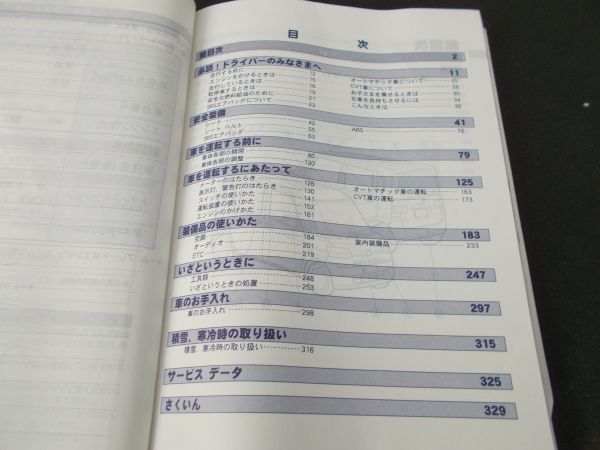 目 次
総目次 2
必読!ドライバーのみなさまへ 11
走行する前に 12
エンジンをかけるときは 15
走行しているときは 16
駐停車するときは 19
安全な燃料給油のために 21
SRSエアバッグについて 23
オートマチック車について 25
CVT車について 28
お子さまを乗せるときは 30
お車を長持ちさせるには 34
こんなときは 38
安全装備 41
シート 42
シート ベルト 55
SRSエアバッグ 63
ABS 76
車を運転する前に 79
車体各部の開閉 80
車体各部の調整 120
車を運転するにあたって 125
メーターのはたらき 126
表示灯、警告灯のはたらき 130
スイッチの使いかた 141
運転装置の使いかた 152
エンジンのかけかた 161
オートマチック車の運転 163
CVT車の運転 173
装備品の使いかた 183
空調 184
オーディオ 201
ETC 219
室内装備品 233
いざというときに 247
工具類 248
いざというときの処置 253
車のお手入れ 297
車のお手入れ 298
積雪、寒冷時の取り扱い 315
積雪、寒冷時の取り扱い 316
サービス データ 325
さくいん 329